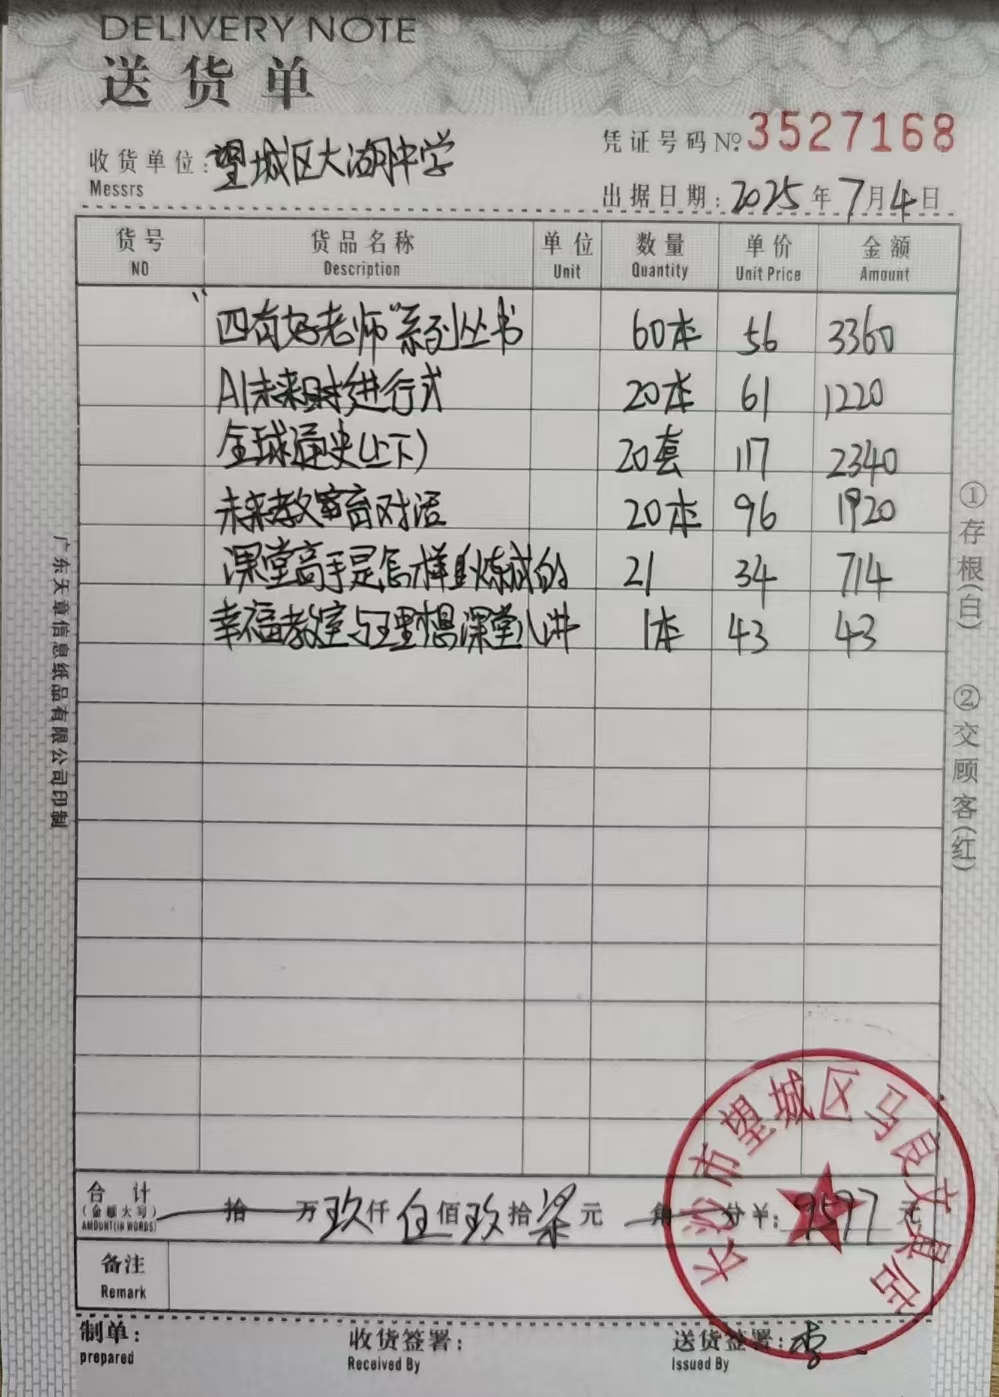 DELIVERY NOTE
送货单
收货单位:望城区大湖中学
Messrs
凭证号码 №.3527168
出据日期:2025年7月4日
货号 货品名称 单位 数量 单价 金额
NO Description Unit Quantity Unit Price Amount
“四有好老师”系列丛书 60本 56 3360
AI未来时进行式 20本 61 1220
全球通史(上下) 20套 117 2340
未来教育对话 20本 96 1920
课堂高手是怎样炼成的 21 34 714
幸福教室与理想课堂八讲 1本 43 43
①存根(白) ②交顾客(红)
广东天章信息纸品有限公司印制
合计 拾 万玖仟伍佰玖拾柒元 角 分¥:9597元
(金额大写)
AMOUNT(IN WORDS)
备注
Remark
长沙市望城区马良文具店
制单: 收货签署: 送货签署:李
prepared Received By Issued By